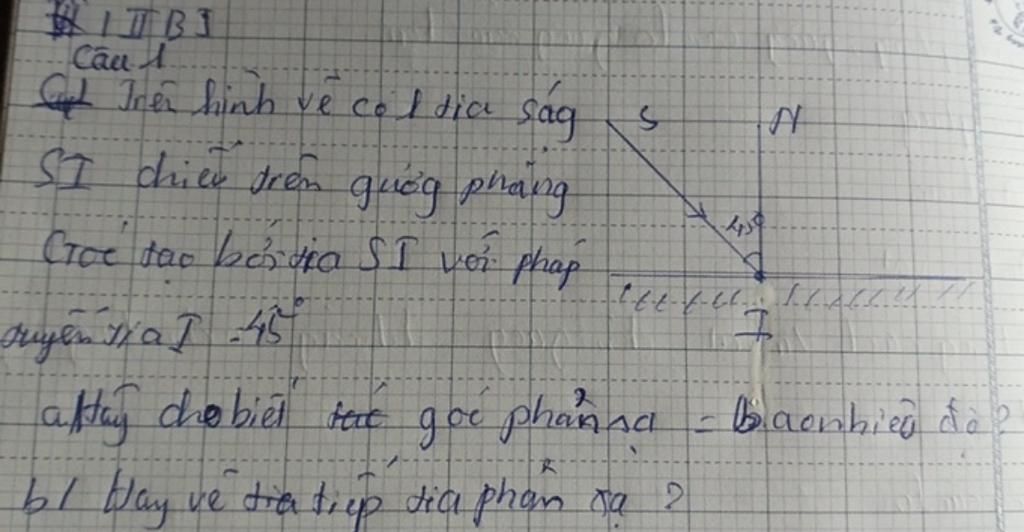 1 II B I
Câu 1
Trên hình vẽ có 1 tia ság S N
SI chiếu trên guơg phẳng
45°
Góc tạo bởi tia SI với pháp
tuyến tia I = 45°
I
a Hãy cho biết góc phản xạ = baonhiêu độ?
b/ Hay vẽ tiếp tia phản xạ ?